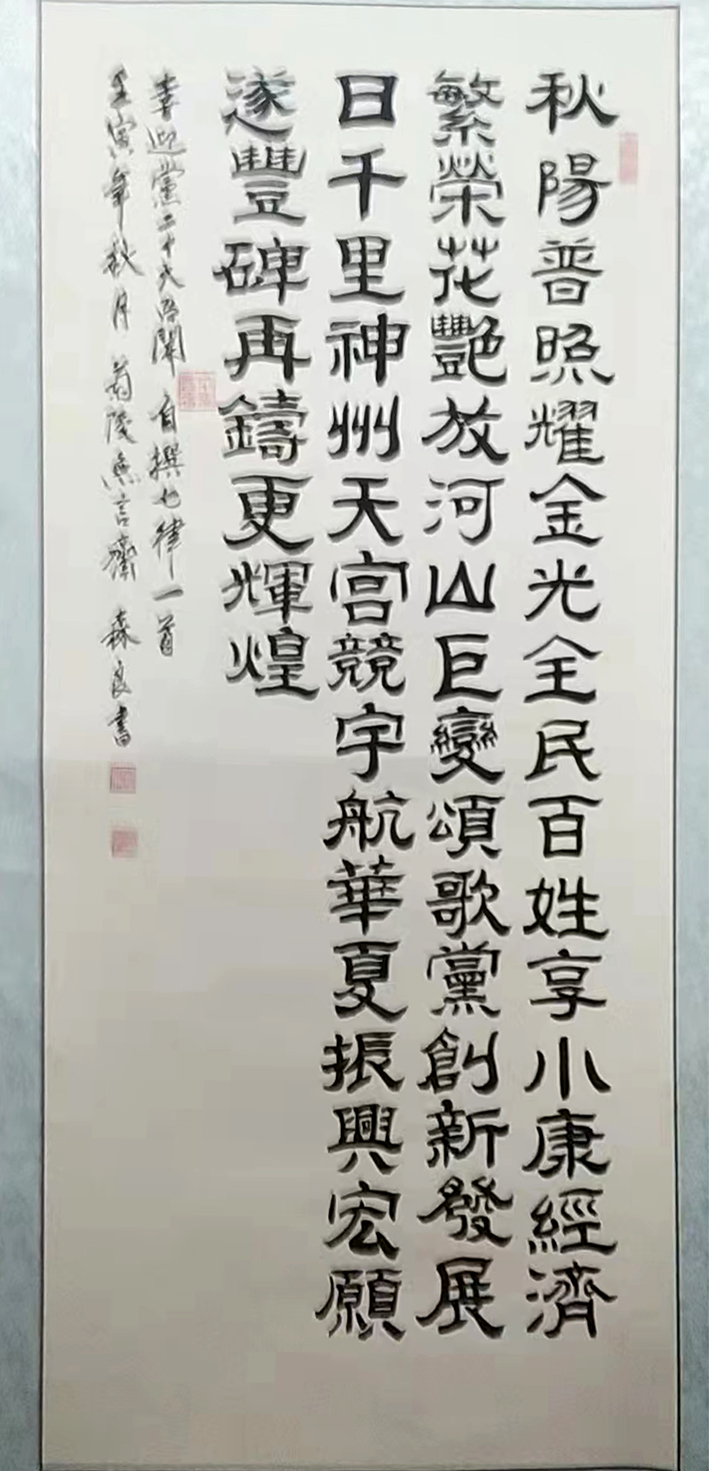 秋陽普照耀金光全民百姓享小康經濟
繁榮花艷放河山巨變頌歌黨創新發展
日千里神州天宮競宇航華夏振興宏願
遂豐碑再鑄更輝煌
幸迎黨二十大召開 自撰七律一首
壬寅年秋月 蘭陵魚言齋 森良書